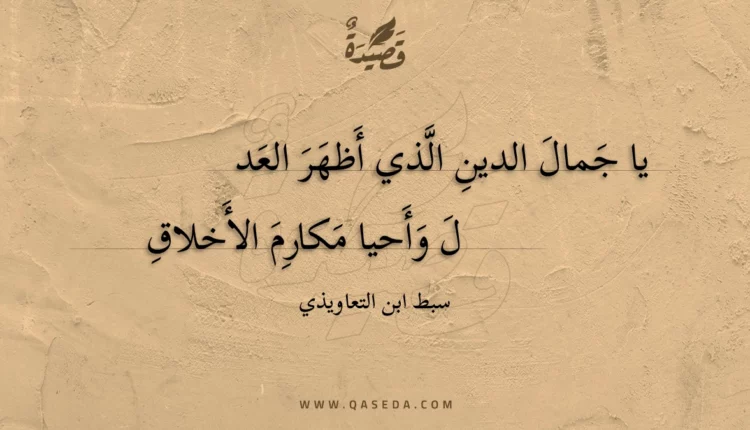 قَصِيْدَةٌ
يا جَمالَ الدينِ الَّذي أَظهَرَ العَد
لَ وَأَحيا مَكارِمَ الأَخلاقِ
سبط ابن التعاويذي
WWW.QASEDA.COM